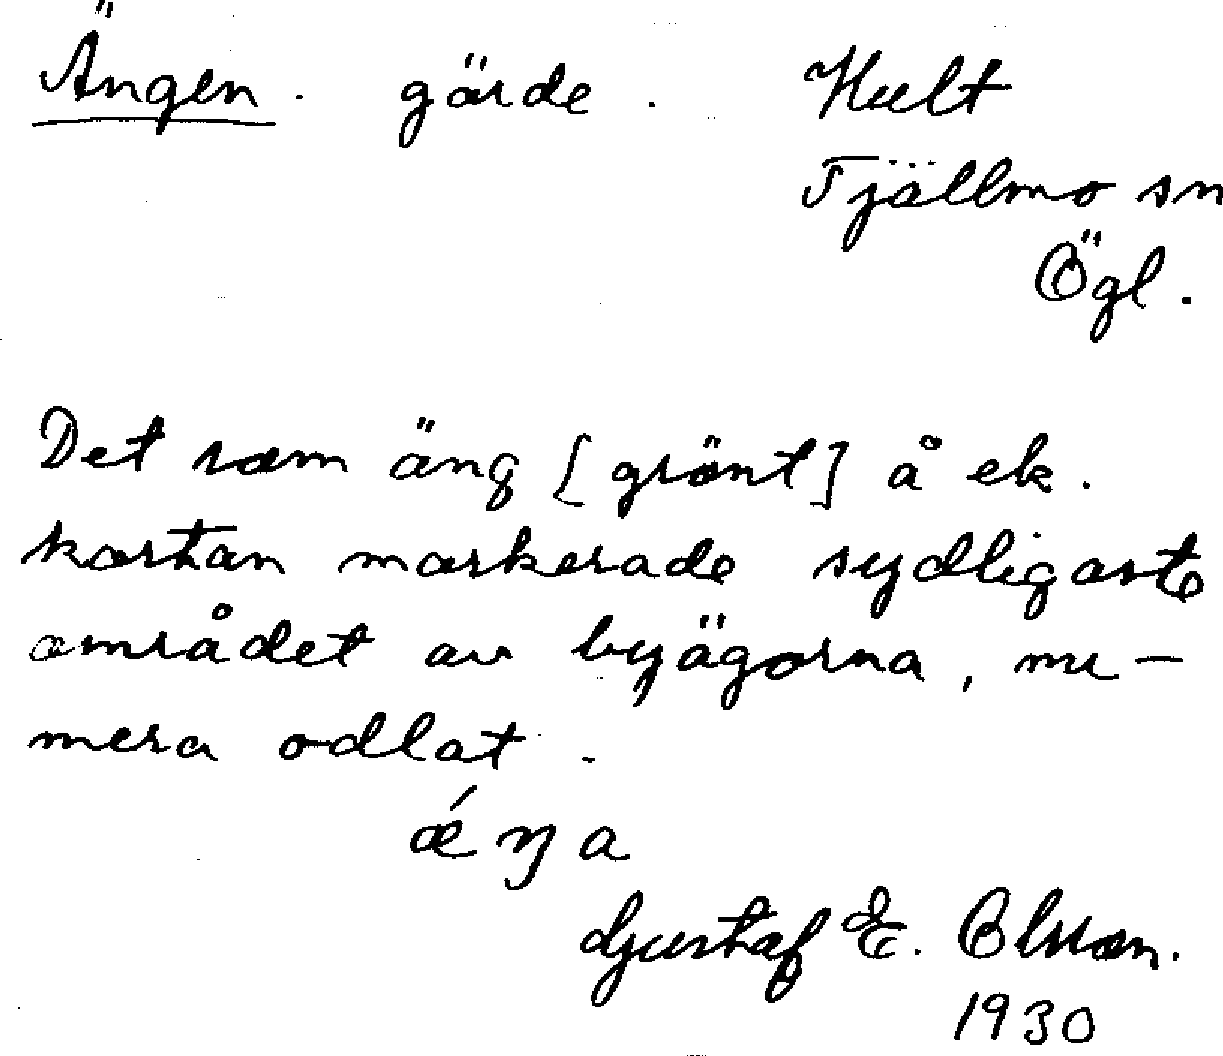 Ängen. gärde. Hult
Tjällmo sn
Ögl.
Det som äng [grönt] å ek.
kartan markerade sydligaste
området av byägorna, nu-
mera odlat.
ǽŋa
Gustaf E. Olsson.
1930